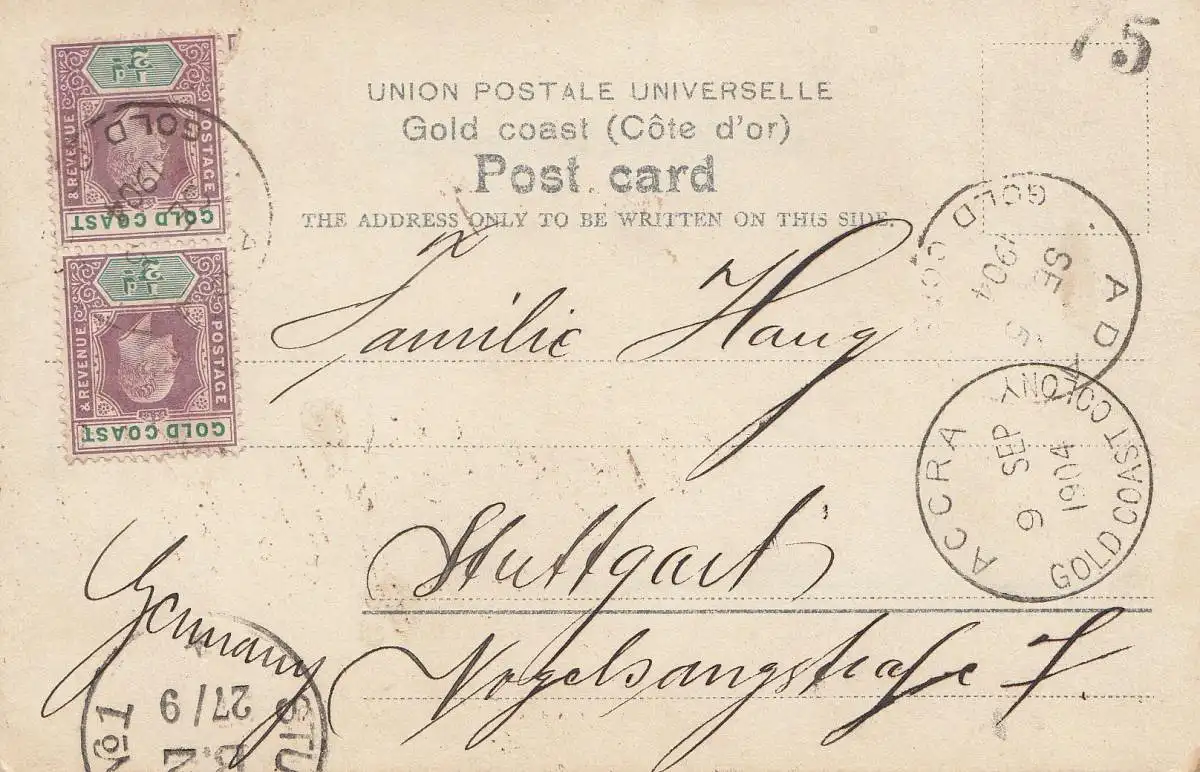 5
UNION POSTALE UNIVERSELLE
Gold coast (Côte d'or)
Post card
THE ADDRESS ONLY TO BE WRITTEN ON THIS SIDE.
½d
POSTAGE
& REVENUE
GOLD COAST
½d
POSTAGE
& REVENUE
GOLD COAST
GOLD
1904
GOLD COA
AD
SE
1904
5
ACCRA
9 SEP
1904
GOLD COAST COLONY
Familie Haug
Stuttgart
Vogelsangstraße 7.
Germany
STU
27/9
B.Z
No1